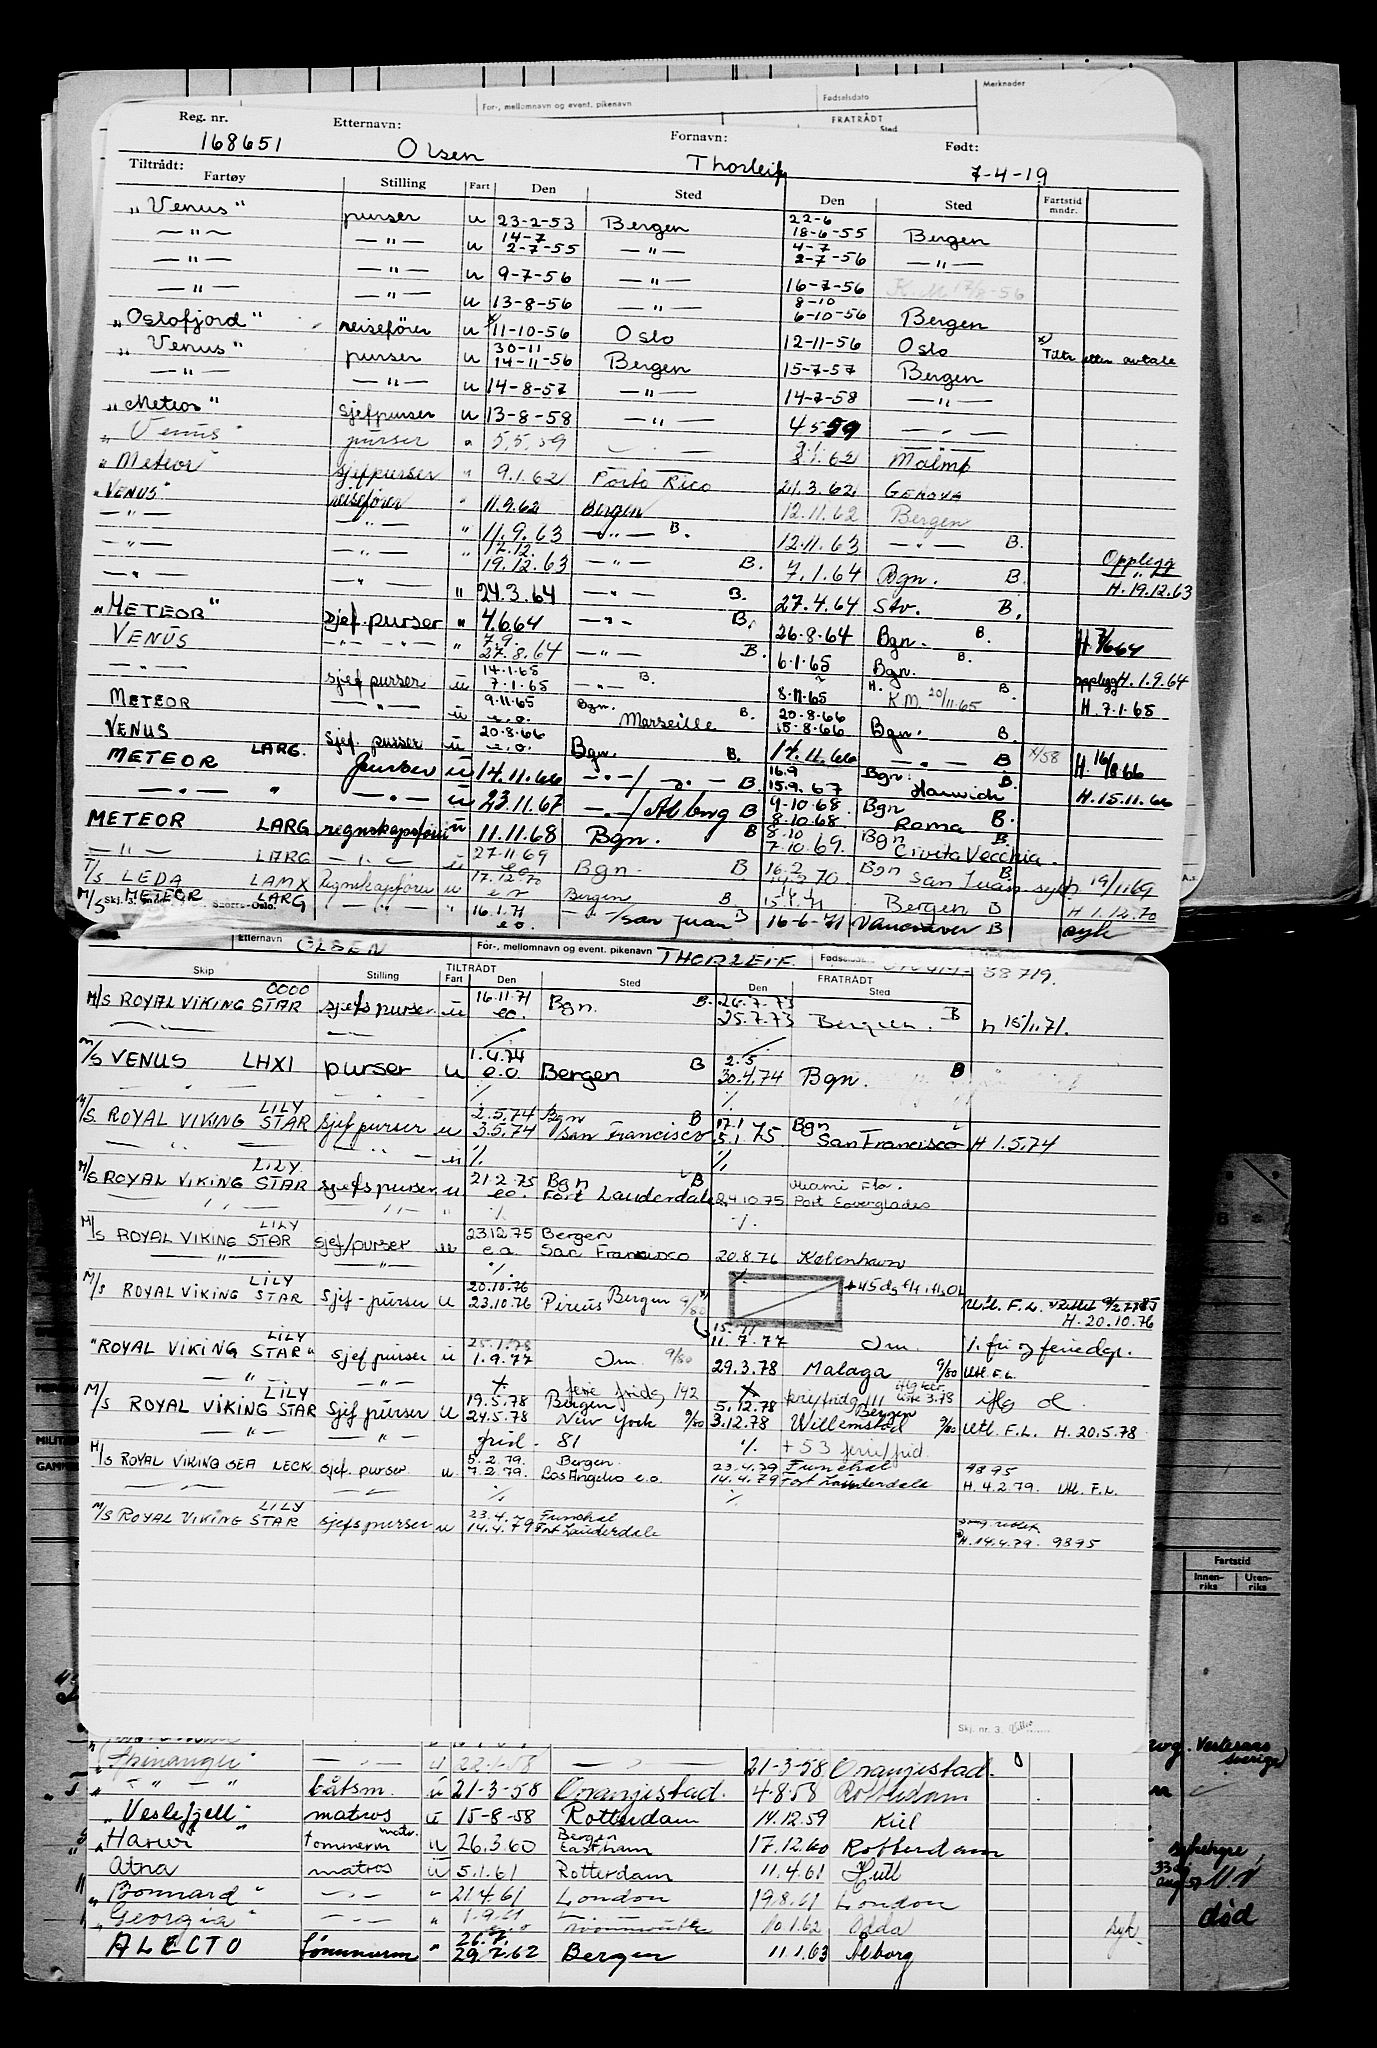 For-, mellomnavn og event. pikenavn Fødselsdato Merknader
FRATRÅDT
Sted
Reg. nr. Etternavn: Fornavn: Født:
168651 Olsen Thorleif 7-4-19
Tiltrådt:
Fartøy Stilling Fart Den Sted Den Sted Fartstid mndr.
"Venus" purser u 23-2-53 Bergen 22-6 18-6-55 Bergen
—"— —"— u 14-7 2-7-55 —"— 4-7 2-7-56 —"—
—"— —"— u 9-7-56 —"— 16-7-56
—"— —"— u 13-8-56 —"— 8-10 6-10-56 Bergen
"Oslofjord" reisefører u x11-10-56 Oslo 12-11-56 Oslo x) Tiltr. etter avtale
"Venus" purser u 30-11 14-11-56 Bergen 15-7-57 Bergen
—"— —"— u 14-8-57 —"— 14-7-58 —"—
"Meteor" sjefpurser u 13-8-58 —"— 4.5.59 —"—
"Venus" purser " 5.5.59 —"— 8.1.62 Malmø
"Meteor" sjefpurser " 9.1.62 Porto Rico 21.3.62 Genova
"VENUS" reisefører " 11.9.62 Bergen 12.11.62 Bergen
—"— —"— " 11.9.63 —"— B. 12.11.63 —"— B.
—"— —"— " 12.12. 19.12.63 —"— B. 7.1.64 Bgn. B. Opplegg H. 19.12.63
—"— —"— " 24.3.64 —"— B. 27.4.64 Stv. B.
"METEOR" sjef.purser " 4.6.64 —"— B. 26.8.64 Bgn. B. H. 7/664
VENUS —"— —"— " 7.9. 27.8.64 —"— B. 6.1.65 Bgn. B. opplegg H. 1.9.64
—"— sjefpurser u 14.1.65 7.1.65 —"— B. 8.11.65 H. K.M. 20/11.65 B. H. 7.1.65
METEOR —"— u 9.11.65 e.o. Bgn. Marseille B. 20.8.66 15.8.66 Bgn. B.
VENUS sjef purser u 20.8.66 e.o. Bgn. B. 14.11.66 —"— B x/58 H. 16/8.66
METEOR LARG. Purser u 14.11.66 —"—/—"— B 16.9 15.9.67 Bgn. Harwich B. H. 15.11.66
—"— " —"— u 23.11.67 —"—/Ålborg B 9-10-68 8.10.68 Bgn Roma B.
METEOR LARG regnskapsfører u 11.11.68 Bgn. B 8.10 7.10.69. Bgn Civita Vecchia. B.
—"— LARG —"— u 27.11.69 e.o. Bgn. B 16.2 70 Bgn San Juan syk B. h 19/1169
T/S LEDA LAMX Regnskapfører u 17.12.70 e.o Bergen B. 71 Bergen B H 1.12.70
M/S METEOR LARG —"— " 16.1.71 e.o. —"—/San Juan B 16-6-71 Vancouver B syk
Etternavn OLSEN For-, mellomnavn og event. pikenavn THORLEIF. 58719.
Skip Stilling TILTRÅDT Fart Den Sted Den FRATRÅDT Sted
M/S ROYAL VIKING STAR OOOO sjefspurser u 16.11.71 eo. Bgn. B. 26.7.73 25.7.73 Bergen. B h 15/11.71.
M/S VENUS LHXI purser u 1.4.74 e.o Bergen B 2.5 30.4.74 Bgn. B
M/S ROYAL VIKING STAR LILY sjefpurser u 2.5.74 3.5.74 Bgn San Francisco B 17.1 5.1 75 Bgn San Francisco H 1.5.74
M/S ROYAL VIKING STAR LILY sjefspurser u 21.2.75 eo. Bgn Fort Lauderdale B 24.10.75 Miami Fla. Port Eoverglades
M/S ROYAL VIKING STAR LILY sjef/purser u 23.12.75 e.o. Bergen San Francisco 20.8.76 København
M/S ROYAL VIKING STAR LILY sjef-purser u 20.10.76 23.10.76 Pireus Bergen 9/80 +45dg Utl. F.L. H. 20.10.76
15. 11 11.7.77 Om. %. fri og feriedgr.
"ROYAL VIKING STAR" LILY sjefpurser u 25.1.78 1.9.77 Om 9/80 29.3.78 Malaga 9/80 Utl. F.L.
ferie fridg 142
M/S ROYAL VIKING STAR LILY sjef purser u 19.5.78 24.5.78 Bergen New York 9/80 5.12.78 3.12.78 Bergen Willemstad 9/80 Utl. F.L. H. 20.5.78
frid. 81 %. +53 ferie/frid
M/S ROYAL VIKING SEA LECK sjef. purser. u 5.2.79. 7.2.79. Bergen. Los Angeles e.o. 23.4.79 14.4.79 Funchal Fort Lauderdale 9895 H. 4.2.79. Utl. F.L.
M/S ROYAL VIKING STAR LILY sjefspurser u 23.4.79 14.4.79 Funchal Fort Lauderdale H. 14.4.79. 9895
Fartstid
Innenriks Utenriks
Skj. nr. 3.
"Spinanger" —"— u 22.1.58 —"— 21-3-58 Oranjestad.
" —"— båtsm. u 21-3-58 Oranjestad. 4-8-58 Rotterdam
"Veslefjell" matros u 15-8-58 Rotterdam 14.12.59 Kiel
"Havur" matr. tømmerm u 26.3.60 Bergen Eastham 17.12.60 Rotterdam
Atna matros u 5.1.61 Rotterdam 11.4.61 Hull
"Bonnard" —"— " 21.4.61 London 19.8.61 London
"Georgia" —"— " 1.9.61 e.o 10.1.62 Odda Syk.
ALECTO tømmerm " 26.7. 29.7.62 Bergen 11.1.63 Ålborg
død